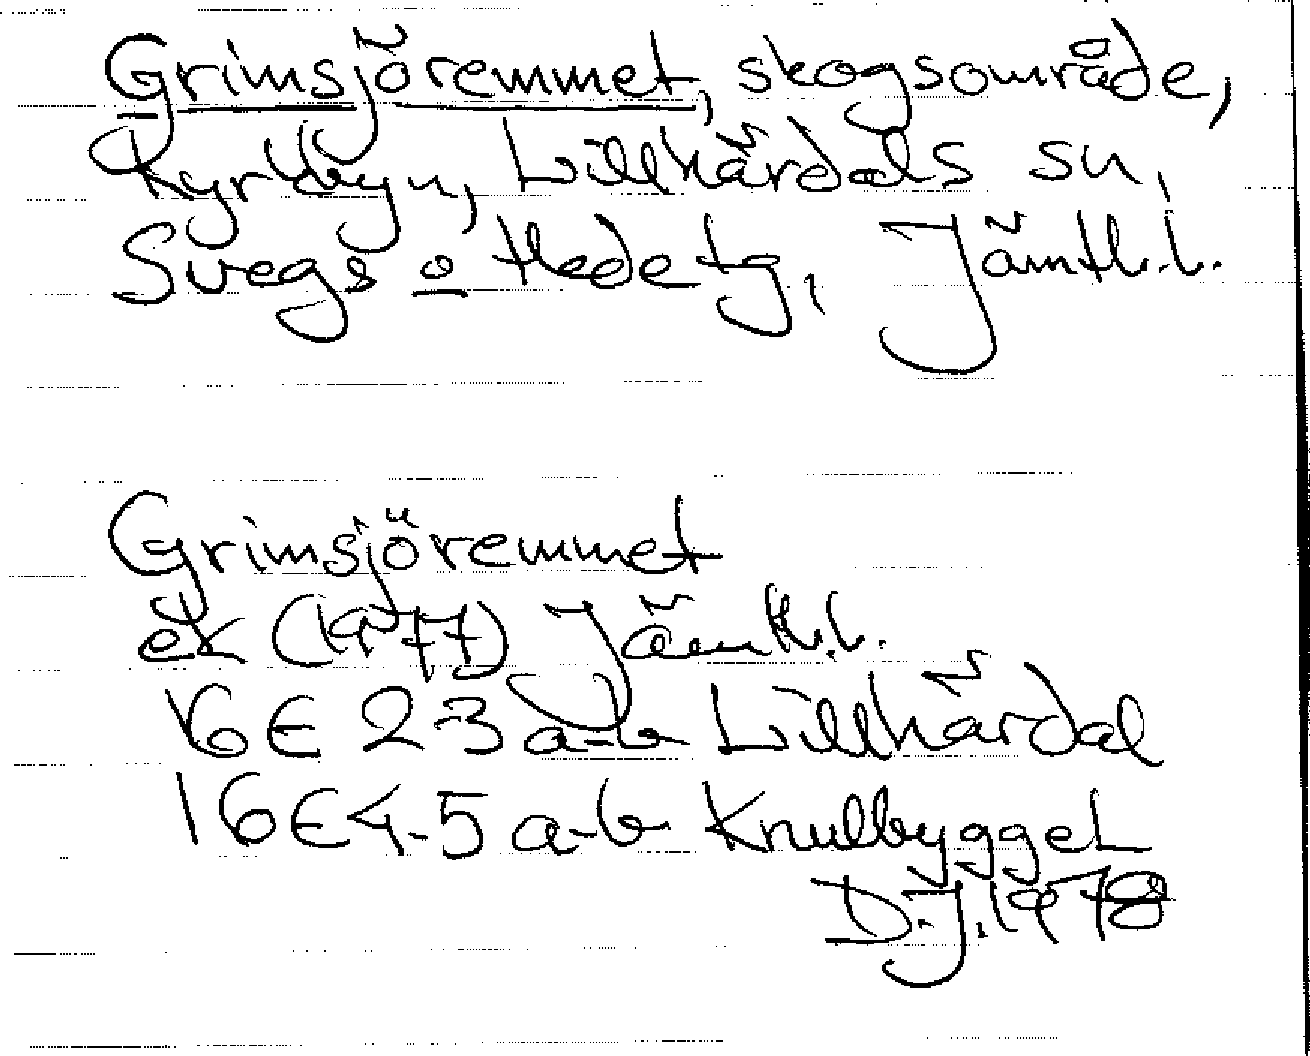 Grimsjöremmet, skogsområde,
Kyrkbyn, Lillhärdals sn,
Svegs o Hede tg, Jämtl.l.
Grimsjöremmet
ek (1977) Jämtl.l.
16E 2-3 a-b Lillhärdal
16E 4-5 a-b Knulbygget
D.J. 1978